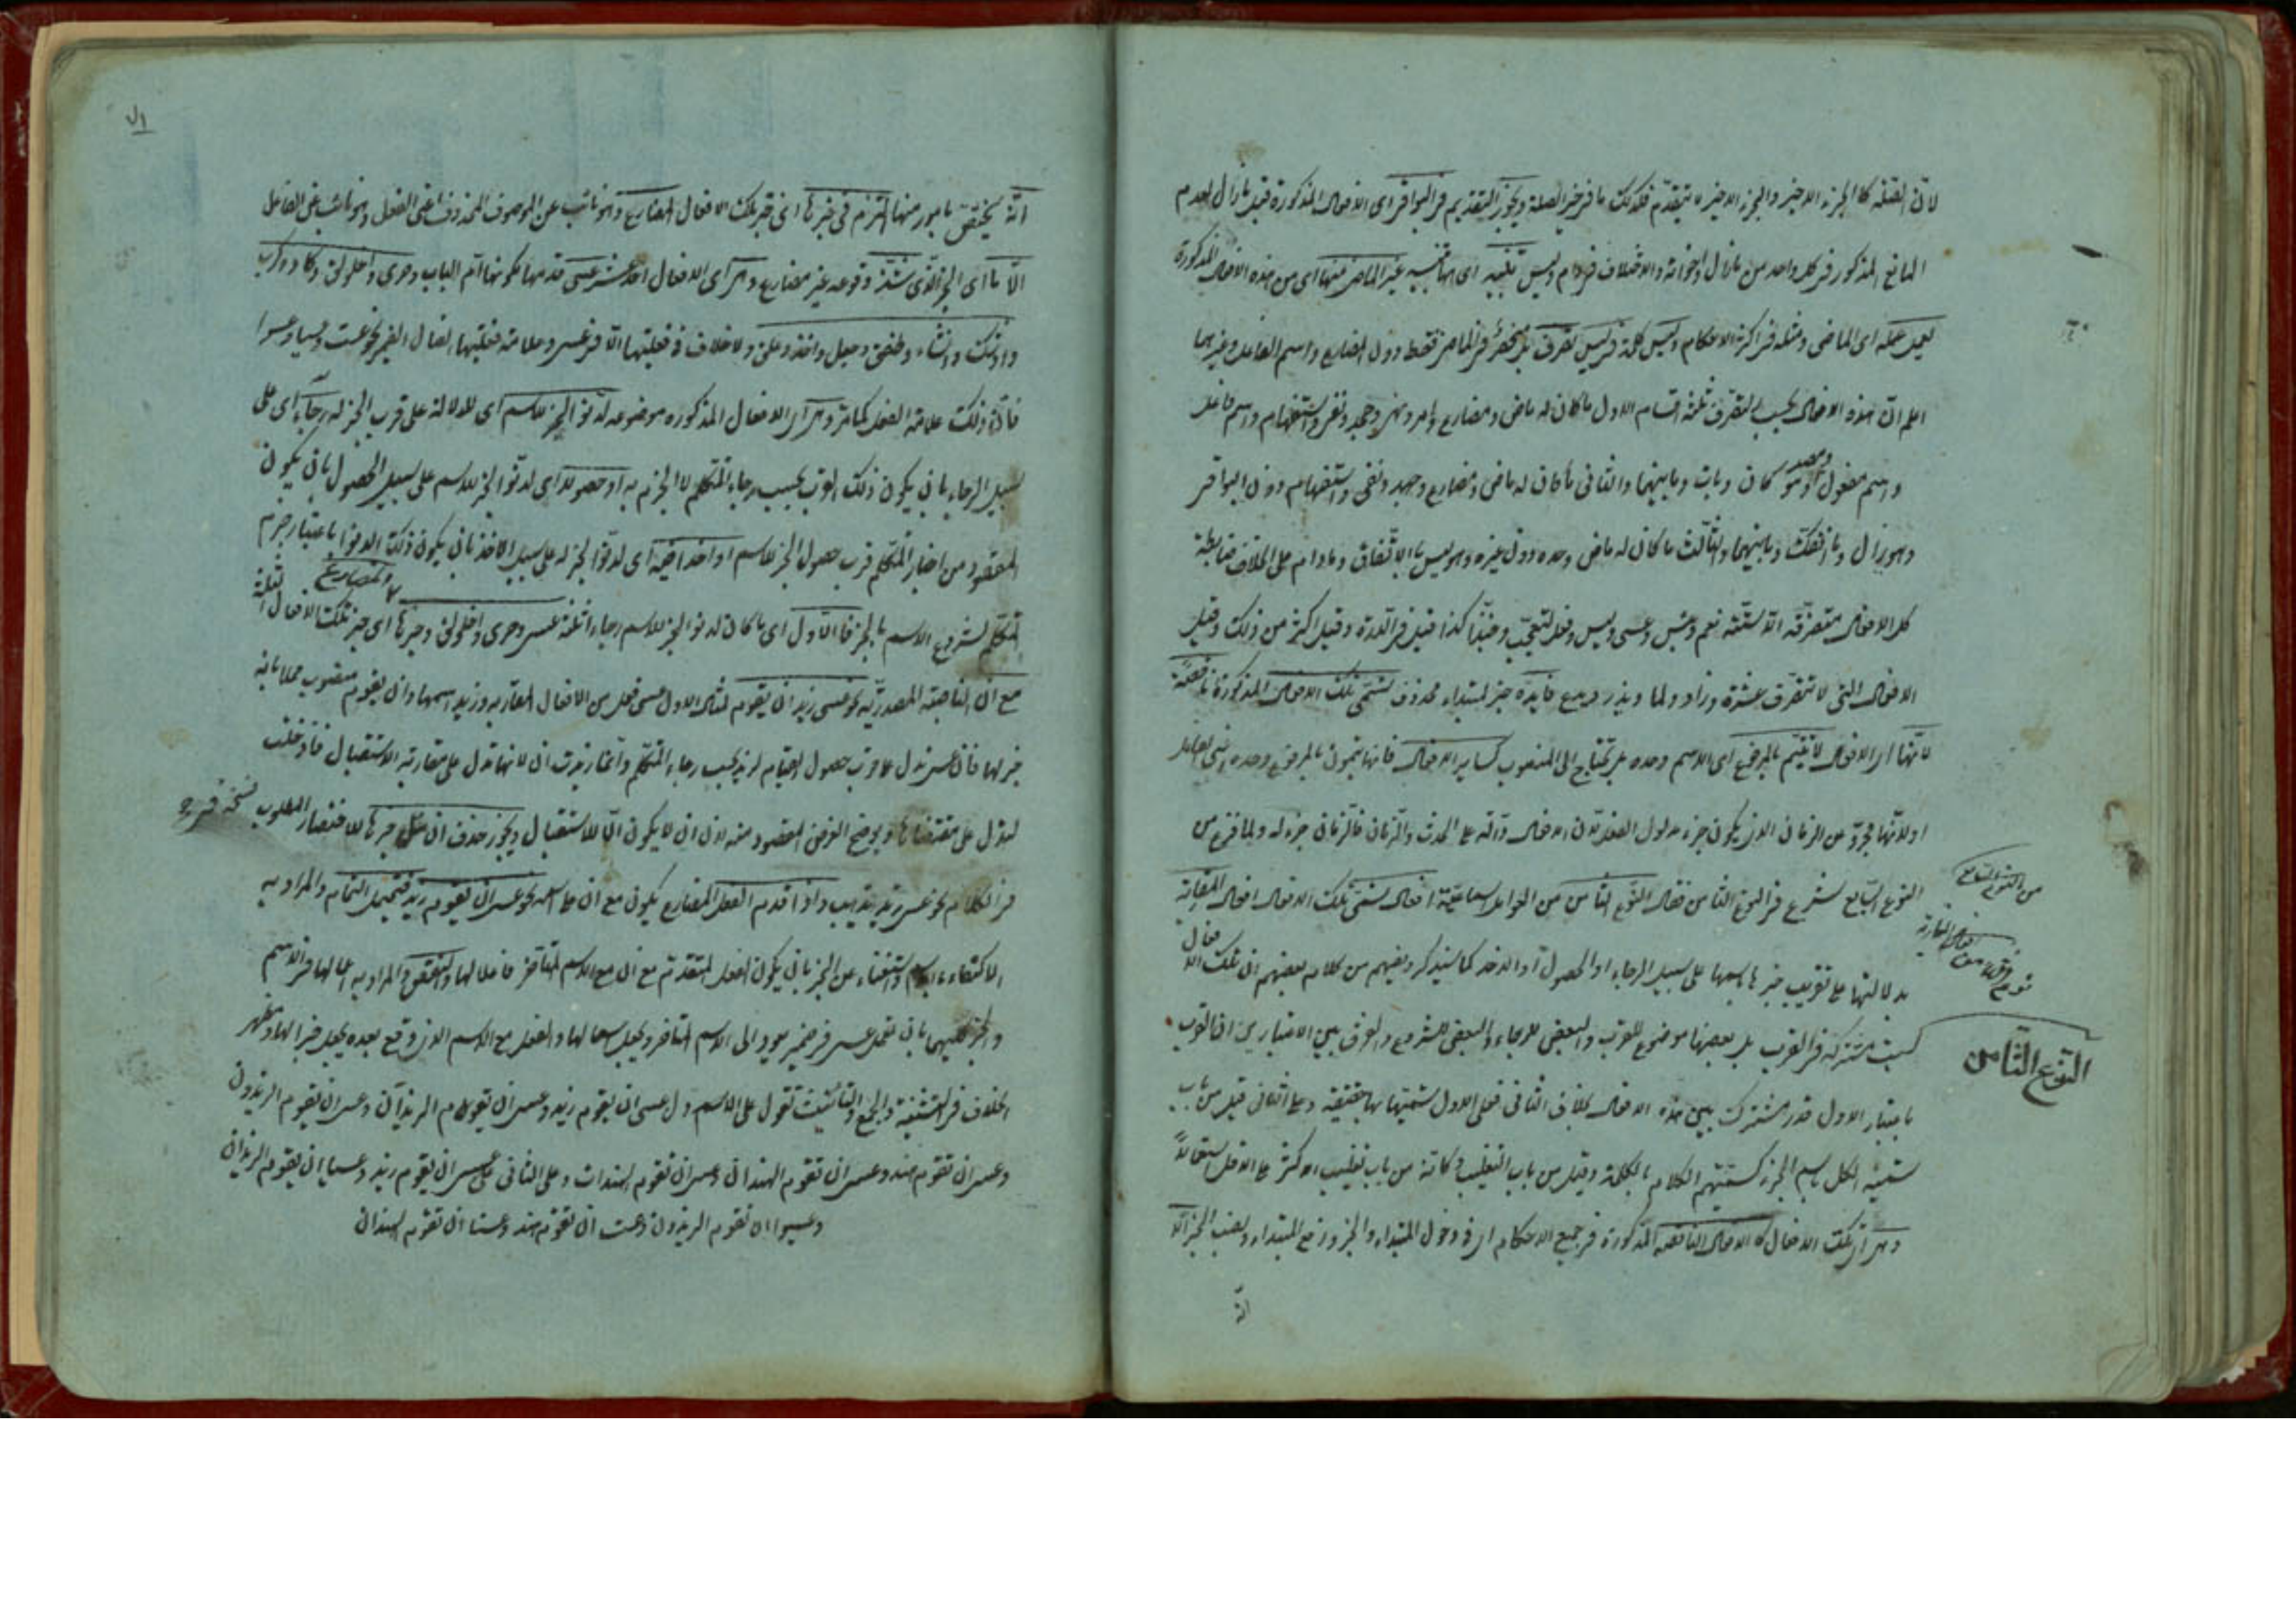 لان الصلة كالجزء الاخير والجزء الاخير لا يتقدم فكذلك ما فى حيز الصلة ويجوز التقديم فى البواقى اى الافعال المذكورة قبل مازال لعدم
المانع المذكور فى كل واحد من مازال واخواته والاختلاف فى مادام وليس تنبيه اى هذا تنبيه غير الماضى منها اى من هذه الافعال المذكورة
يعمل عمله اى الماضى ومثله فى اكثر الاحكام وليس كلمة فى ليس تصرف بل ينحصر فى الماضى فقط دون المضارع واسم الفاعل وغيرهما
اعلم ان هذه الافعال بحسب التصرف ثلثة اقسام الاول ما كان له ماض ومضارع وامر ونهى وجحد ونفى واستفهام واسم فاعل
واسم مفعول ومصدر وهو كان وبات وما بينهما والثانى ما كان له ماض ومضارع وجحد ونفى واستفهام دون البواقى
وهو مازال وما انفك وما بينهما والثالث ما كان له ماض وحده دون غيره وهو ليس بالاتفاق ومادام على الخلاف ضابطة
كل الافعال متصرفة الا ستة نعم وبئس وعسى وليس وفعل التعجب وحبذا كذا قيل فى الدرة وقيل اكثر من ذلك وقيل
الافعال التى لا تتصرف عشرة وزاد ولما ويذر ويدع فايده خبر لمبتداء محذوف تسمى تلك الافعال المذكورة ناقصة
لانها اى الافعال لا تتم بالمرفوع اى الاسم وحده بل تحتاج الى المنصوب كساير الافعال فانها يتمون بالمرفوع وحده
او لانها مجردة عن الزمان الذى يكون جزء مدلول الفعل لان الافعال دالة على الحدث والزمان فالزمان جزء له ولما فرغ من
النوع السابع شرع فى النوع الثامن فقال النوع الثامن من العوامل السماعية افعال تسمى تلك الافعال افعال المقاربة
بدلالتها على تقريب خبرها باسمها على سبيل الرجاء او الحصول او الاخذ كما سيذكر ويفهم من كلام بعضهم ان تلك الافعال
ليست مشتركة فى القرب بل بعضها موضوع للقرب والبعض للرجاء والبعض للشروع والفرق بين الاعتبارين ان القرب
باعتبار الاول قدر مشترك بين هذه الافعال بخلاف الثانى فعلى الاول تسميتها بها حقيقة وعلى الثانى قيل من باب
تسمية الكل باسم الجزء كتسميتهم الكلام بالكلمة وقيل من باب التغليب وكانه من باب تغليب الاكثر على الاقل استعمالا
وهى اى تلك الافعال كالافعال الناقصة المذكورة فى جميع الاحكام اى فى دخول المبتداء والخبر ورفع المبتداء ونصب الخبر الا
انه
من النوع السابع
النوع الثامن
۷۱
انه يختص بامور منها التزم فى خبرها اى فى خبر تلك الافعال المضارع وهو نائب عن الموصوف المحذوف اعنى الفعل وهو نائب عن الفاعل
الا ما اى الخبر الذى شذ وقوعه غير مضارع وهى اى الافعال احد عشر عسى قدمها لكونها ام الباب وحرى واخلولق وكاد وكرب
واوشك وانشاء وطفق وجعل واخذ وعلق ولا خلاف فى فعليتها الا فى عسى وعلامة فعليتها اتصال الضمير نحو عست وعسيا وعسوا
فان ذلك علامة الفعل كما مر وهى اى الافعال المذكوره موضوعه لدنو الخبر للاسم اى للدلالة على قرب الخبر له رجاء اى على
سبيل الرجاء بان يكون ذلك القرب بحسب رجاء المتكلم لا الجزم به او حصولا اى لدنو الخبر للاسم على سبيل الحصول بان يكون
المقصود من اخبار المتكلم قرب حصول الخبر للاسم او اخذا فيه اى لدنو الخبر له على سبيل الاخذ بان يكون ذلك الدنو باعتبار جزم
المتكلم لشروع الاسم بالخبر فالاول اى ما كان لدنو الخبر للاسم رجاء ثلثة عسى وحرى واخلولق وخبرها اى خبر تلك الافعال الثلثة
والمضارع
مع ان الناصبة المصدرية نحو عسى زيد ان يقوم مثال الاول عسى فعل من الافعال المقاربه وزيد اسمها وان يقوم منصوب محلا بانه
خبر لها فان عسى تدل على قرب حصول القيام لزيد بحسب رجاء المتكلم وانما زيدت ان لانها تدل على مقاربة الاستقبال فادخلت
لتدل على مقتضاها ويوضح الغرض المقصود منه لان ان لا يكون الا للاستقبال ويجوز حذف ان على خبرها للاختصار المطلوب
فى الكلام نحو عسى زيد يذهب واذا قدم الفعل المضارع يكون مع ان على اسمه نحو عسى ان يقوم زيد فتحتمل التمام والمراد به
الاكتفاء بالاسم واستغناء عن الخبر بان يكون الفعل المتقدم مع ان مع الاسم المتاخر فاعلا لها والنقص والمراد به اعمالها فى الاسم
والخبر كليهما بان تعمل عسى فى ضمير يعود الى الاسم المتاخر ويجعل اسما لها والفعل مع الاسم الذى وقع بعده يجعل خبرا لها ويظهر
الخلاف فى التثنية والجمع والتانيث تقول على الاول عسى ان يقوم زيد وعسى ان يقوم الزيدان وعسى ان يقوم الزيدون
وعسى ان تقوم هند وعسى ان تقوم الهندان وعسى ان تقوم الهندات وعلى الثانى عسى ان يقوم زيد وعسيا ان يقوم الزيدان
وعسوا ان يقوم الزيدون وعست ان تقوم هند وعستا ان تقوم الهندان